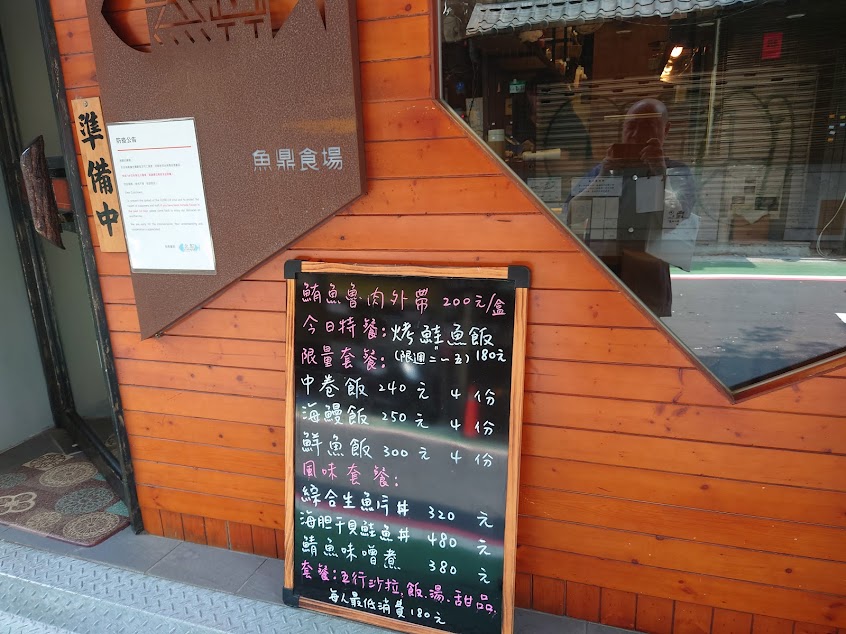 魚鼎食場
準備中
防疫公告
鮪魚魯肉外帶 200元/盒
今日特餐:烤鮭魚飯
限量套餐:(限週二~五)180元
中卷飯 240元 4份
海鰻飯 250元 4份
鮮魚飯 300元 4份
風味套餐:
綜合生魚片丼 320元
海胆干貝鮭魚丼 480元
鯖魚味噌煮 380元
套餐:五行沙拉,飯,湯,甜品,
每人最低消費180元